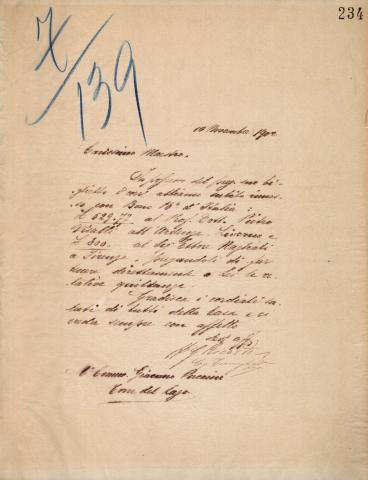 234
7/139
10 Novembre 1902
Carissimo Maestro,
In possesso del preg. suo bi-
glietto d'oggi, abbiamo subito rimes-
so con Banc. B.ca d'Italia:
£ 629.77 al Dott.
all'Ardenza, Livorno e
£ 300. al Sig. Ettore
a Firenze, pregandoli di far
tenere direttamente a Lei le re-
lative quietanze.
Gradisca i cordiali sa-
luti di tutti della Casa e ci
creda sempre con affetto
G. Ricordi
C. Comm. Giacomo Puccini
Torre del Lago